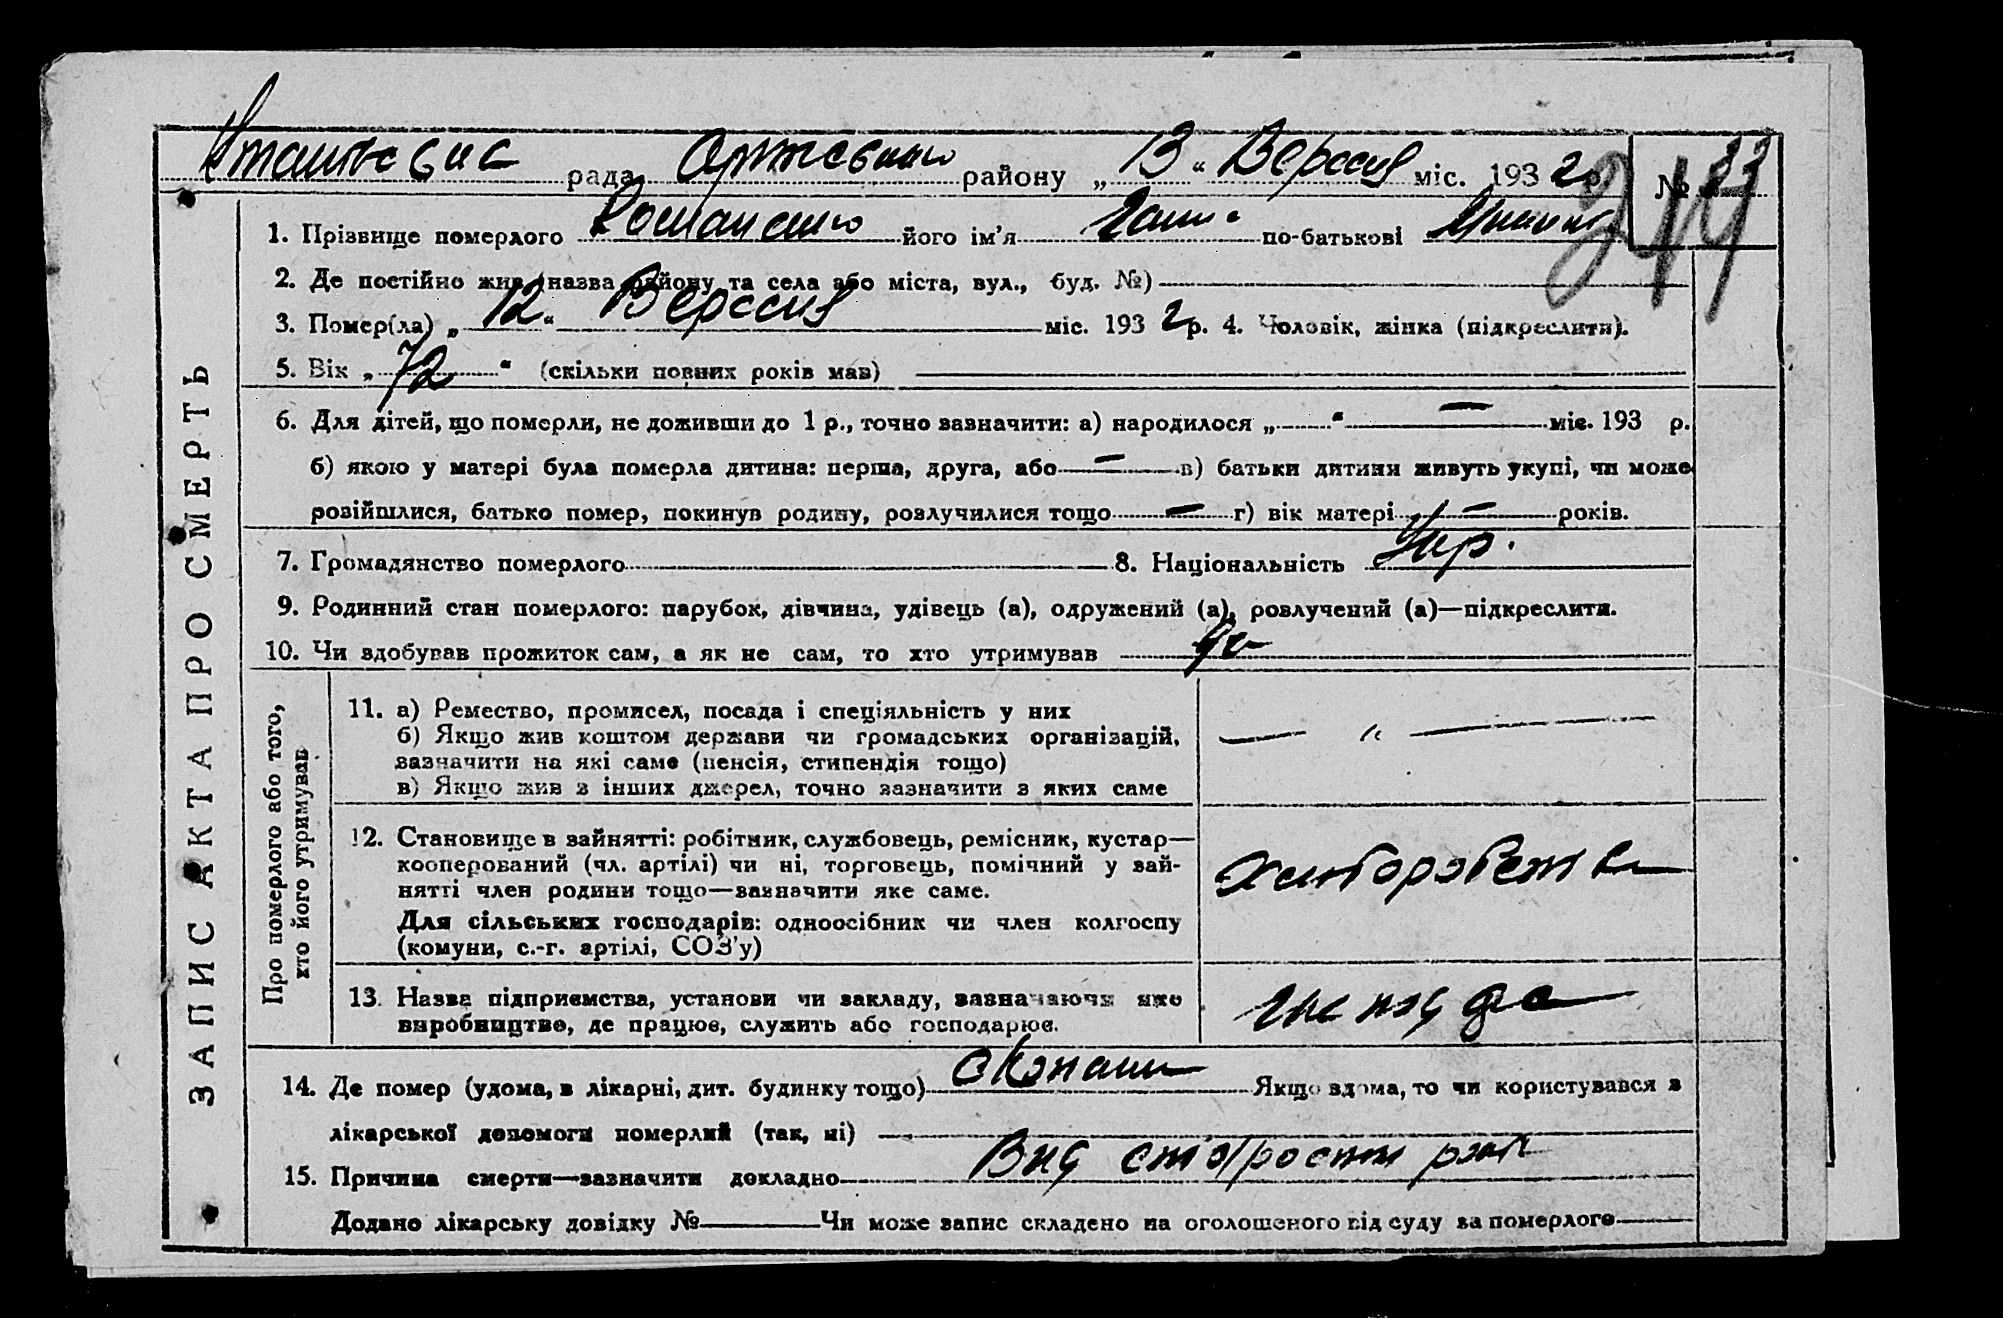 рада району „13“ Вересня міс. 1932 р. № 33
244
1. Прізвище померлого його ім'я по-батькові
2. Де постійно жив (назва району та села або міста, вул., буд. №)
3. Помер(ла) „12“ Вересня міс. 1932 р. 4. Чоловік, жінка (підкреслити).
5. Вік „72“ (скільки повних років мав)
6. Для дітей, що померли, не доживши до 1 р., точно зазначити: а) народилося „ “ — міс. 193 р.
б) якою у матері була померла дитина: перша, друга, або — в) батьки дитини живуть укупі, чи може
розійшлися, батько помер, покинув родину, розлучилися тощо — г) вік матері — років.
7. Громадянство померлого 8. Національність Укр.
9. Родинний стан померлого: парубок, дівчина, удівець (а), одружений (а), розлучений (а)—підкреслити.
10. Чи здобував прожиток сам, а як не сам, то хто утримував
ЗАПИС АКТА ПРО СМЕРТЬ
Про померлого або того,
хто його утримував
11. а) Ремество, промисел, посада і спеціяльність у них
б) Якщо жив коштом держави чи громадських організацій,
зазначити на які саме (пенсія, стипендія тощо)
в) Якщо жив з інших джерел, точно зазначити з яких саме
— “ —
12. Становище в зайнятті: робітник, службовець, ремісник, кустар—
кооперований (чл. артілі) чи ні, торговець, помічний у зай-
нятті член родини тощо—зазначити яке саме.
Для сільських господарів: одноосібник чи член колгоспу
(комуни, с.-г. артілі, СОЗ'у)
13. Назва підприємства, установи чи закладу, зазначаючи яке
виробництво, де працює, служить або господарює.
14. Де помер (удома, в лікарні, дит. будинку тощо) Якщо вдома, то чи користувався з
лікарської допомоги померлий (так, ні)
15. Причина смерти—зазначити докладно Вид старости
Додано лікарську довідку № Чи може запис складено на оголошеного від суду за померлого